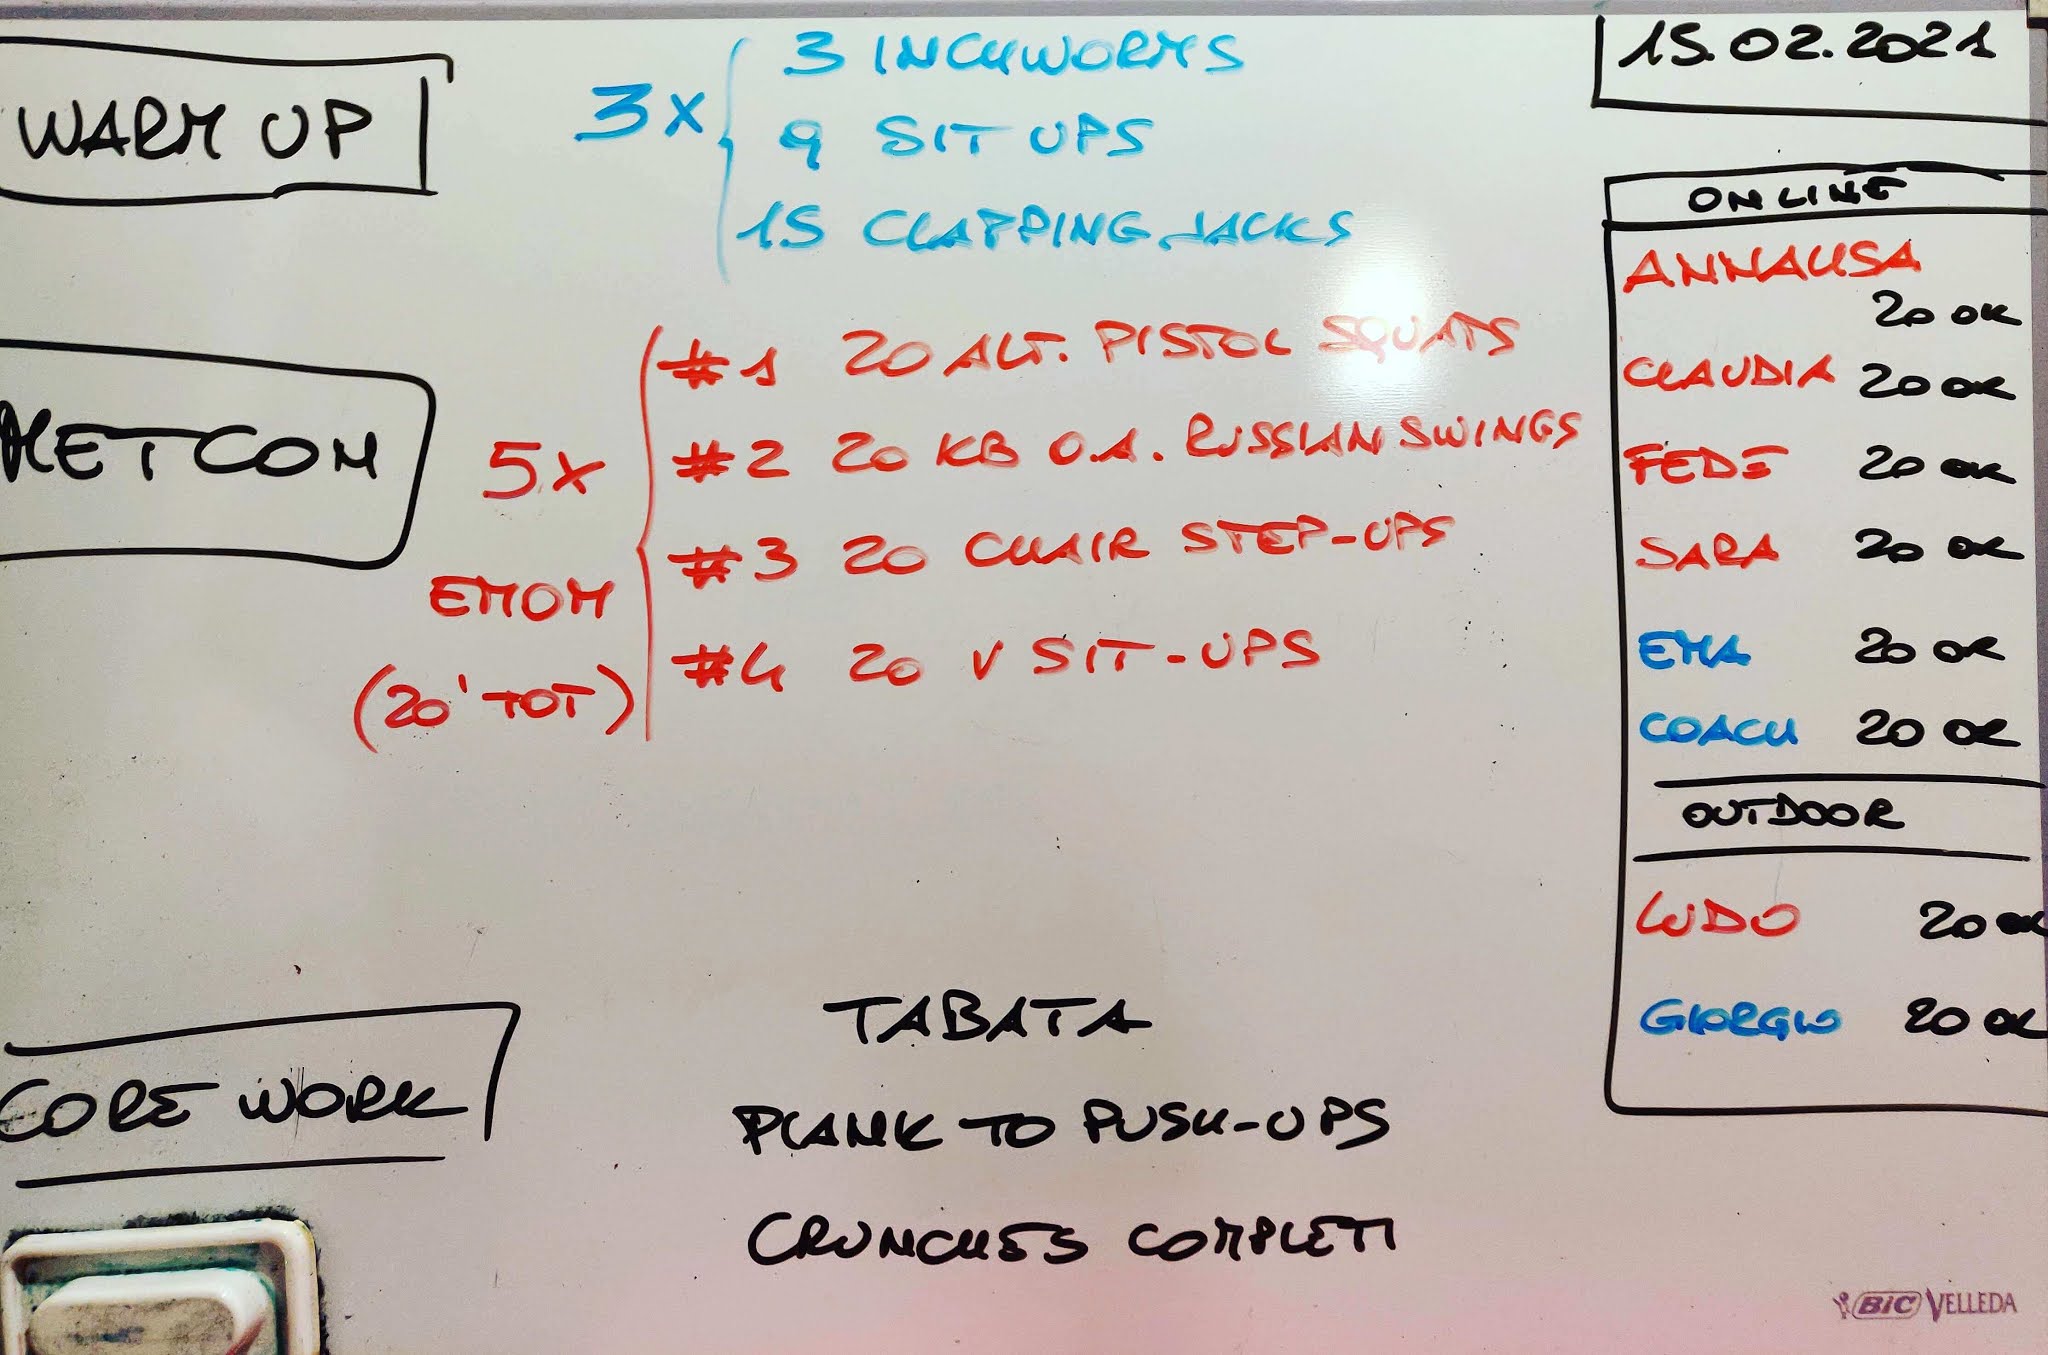 WARM UP
3x
3 INCHWORMS
9 SIT UPS
15 CLAPPING JACKS
METCOM
5x
EMOM
(20' TOT)
#1 20 ALT. PISTOL SQUATS
#2 20 KB O.A. RUSSIAN SWINGS
#3 20 CHAIR STEP-UPS
#4 20 V SIT-UPS
CORE WORK
TABATA
PLANK TO PUSH-UPS
CRUNCHES COMPLETI
15.02.2021
ONLINE
ANNALISA
20 OK
CLAUDIA 20 OK
FEDE 20 OK
SARA 20 OK
EMA 20 OK
COACH 20 OK
OUTDOOR
LUDO 20 OK
GIORGIO 20 OK
BIC VELLEDA